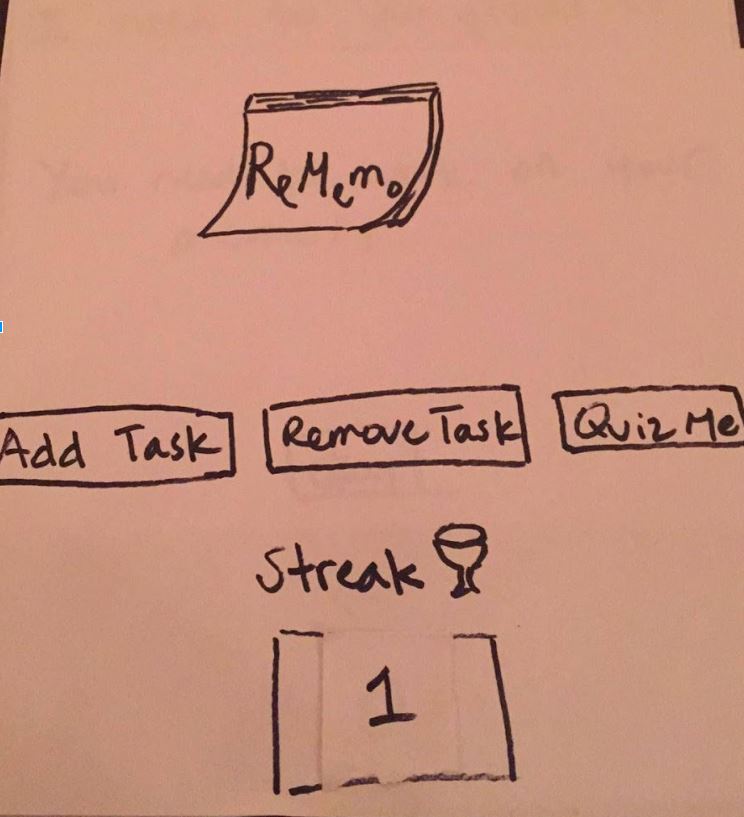 ReMemo
Add Task Remove Task Quiz Me
Streak
1